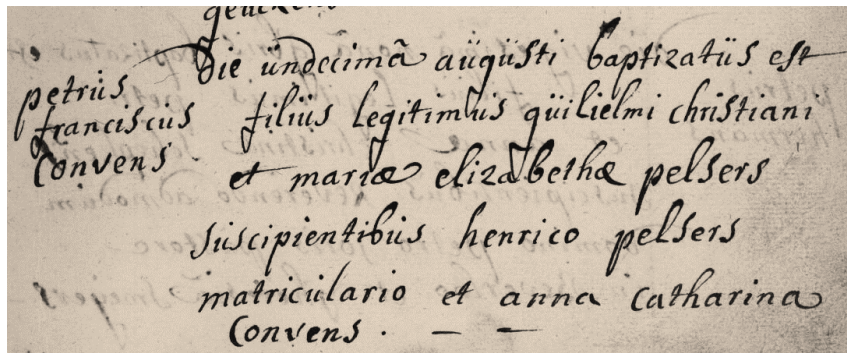 petrus
franciscus
Convens
Die undecimâ augusti baptizatus est
filius legitimus guilielmi christiani
et mariæ elizabethæ pelsers
suscipientibus henrico pelsers
matriculario et anna catharina
Convens . — —